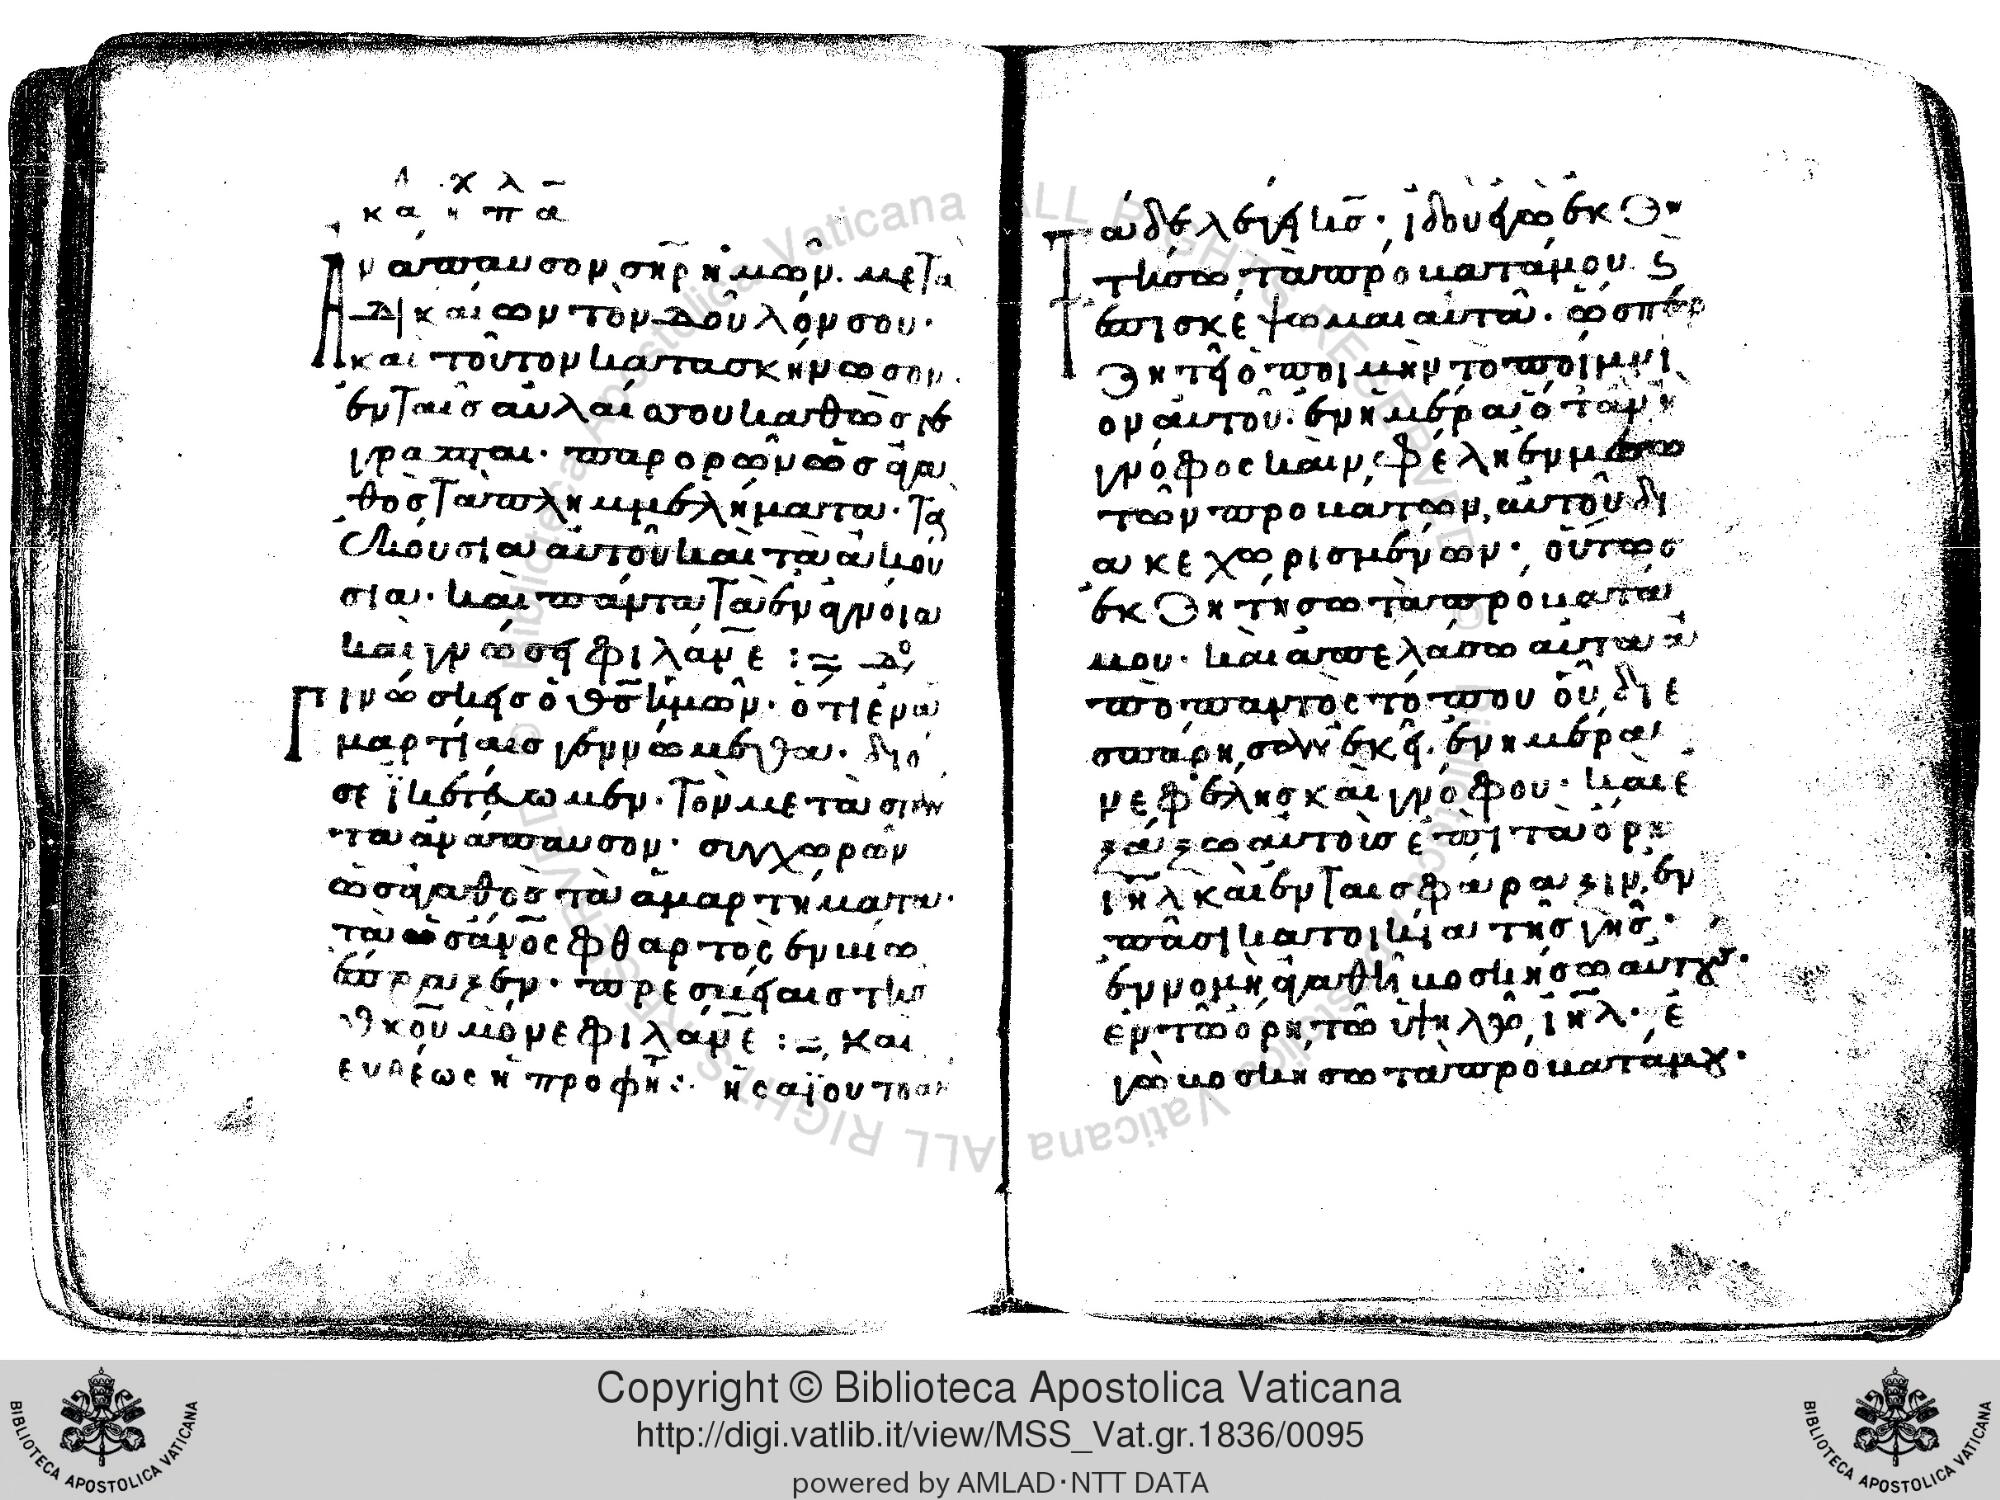 Ἀναπαυσον σηρ ἡμῶν. μετα
δικαίων τὸν δοῦλόν σου·
καὶ τοῦτον κατασκήνωσον
ἐν ταῖσ αὐλαισ σου καθὼσ γέ
γραπται· παρορῶν ὡσ ἀγα
θὸσ τὰ πλημμελήματα· τὰ
ἑκούσια αὐτοῦ καὶ τὰ ἀκού
σια· καὶ πάντα τὰ ἐν ἀγνοία
καὶ γνώσει φιλάνε :
Γινώσκεισ ὁ θσ ἡμῶν· ὅτι ἐν ἁ
μαρτίαισ γεννώμεθα· διό
σε ἱκετεύωμεν· τὸν μεταστάν
τα ἀνάπαυσον· συγχωρῶν
ὡσ ἀγαθὸσ τὰ ἁμαρτήματα·
τὰ ὡσ ἀνος φθαρτὸς ἐν βίω
ἔπραξεν· πρεσβείαισ τῆσ
θκου μόνε φιλάνε : και
ευθέως ἡ προφη ἡσαϊου
Τάδε λέγει κσ· ἰδοὺ ἐγὼ ἐκζη
τήσω τὰ πρόβατά μου
ἐπισκέψωμαι αὐτὰ· ὥσπερ
ζητεῖ ὁ ποιμὴν τὸ ποίμνι
ον αὐτοῦ· ἐν ἡμέρα ὅταν ἦ
γνόφος καὶ νεφέλη ἐν μέσω
τῶν προβάτων, αὐτοῦ δι
ακεχωρισμένων· οὕτωσ
ἐκζητήσω τὰ πρόβατά
μου· καὶ ἀπελάσω αὐτὰ ἀ
πὸ παντὸς τόπου οὗ, διε
σπάρησαν ἐκεῖ. ἐν ἡμέρα
νεφέλησ καὶ γνόφου· καὶ ἐ
ξάξω αὐτοὺσ ἐπὶ τὰ ὄρη
ιηλ καὶ ἐν ταισ φάραξιν, ἐν
πάση κατοικία τῆσ γῆσ·
ἐν νομῆ ἀγαθῆ βοσκήσω αὐτούσ·
ἐν τῶ ὄρη, τῶ ὑψηλῶ, ιηλ·, ἐ
γὼ βοσκήσω τὰ πρόβατά μου·
Copyright © Biblioteca Apostolica Vaticana
http://digi.vatlib.it/view/MSS_Vat.gr.1836/0095
powered by AMLAD·NTT DATA
BIBLIOTECA APOSTOLICA VATICANA
BIBLIOTECA APOSTOLICA VATICANA